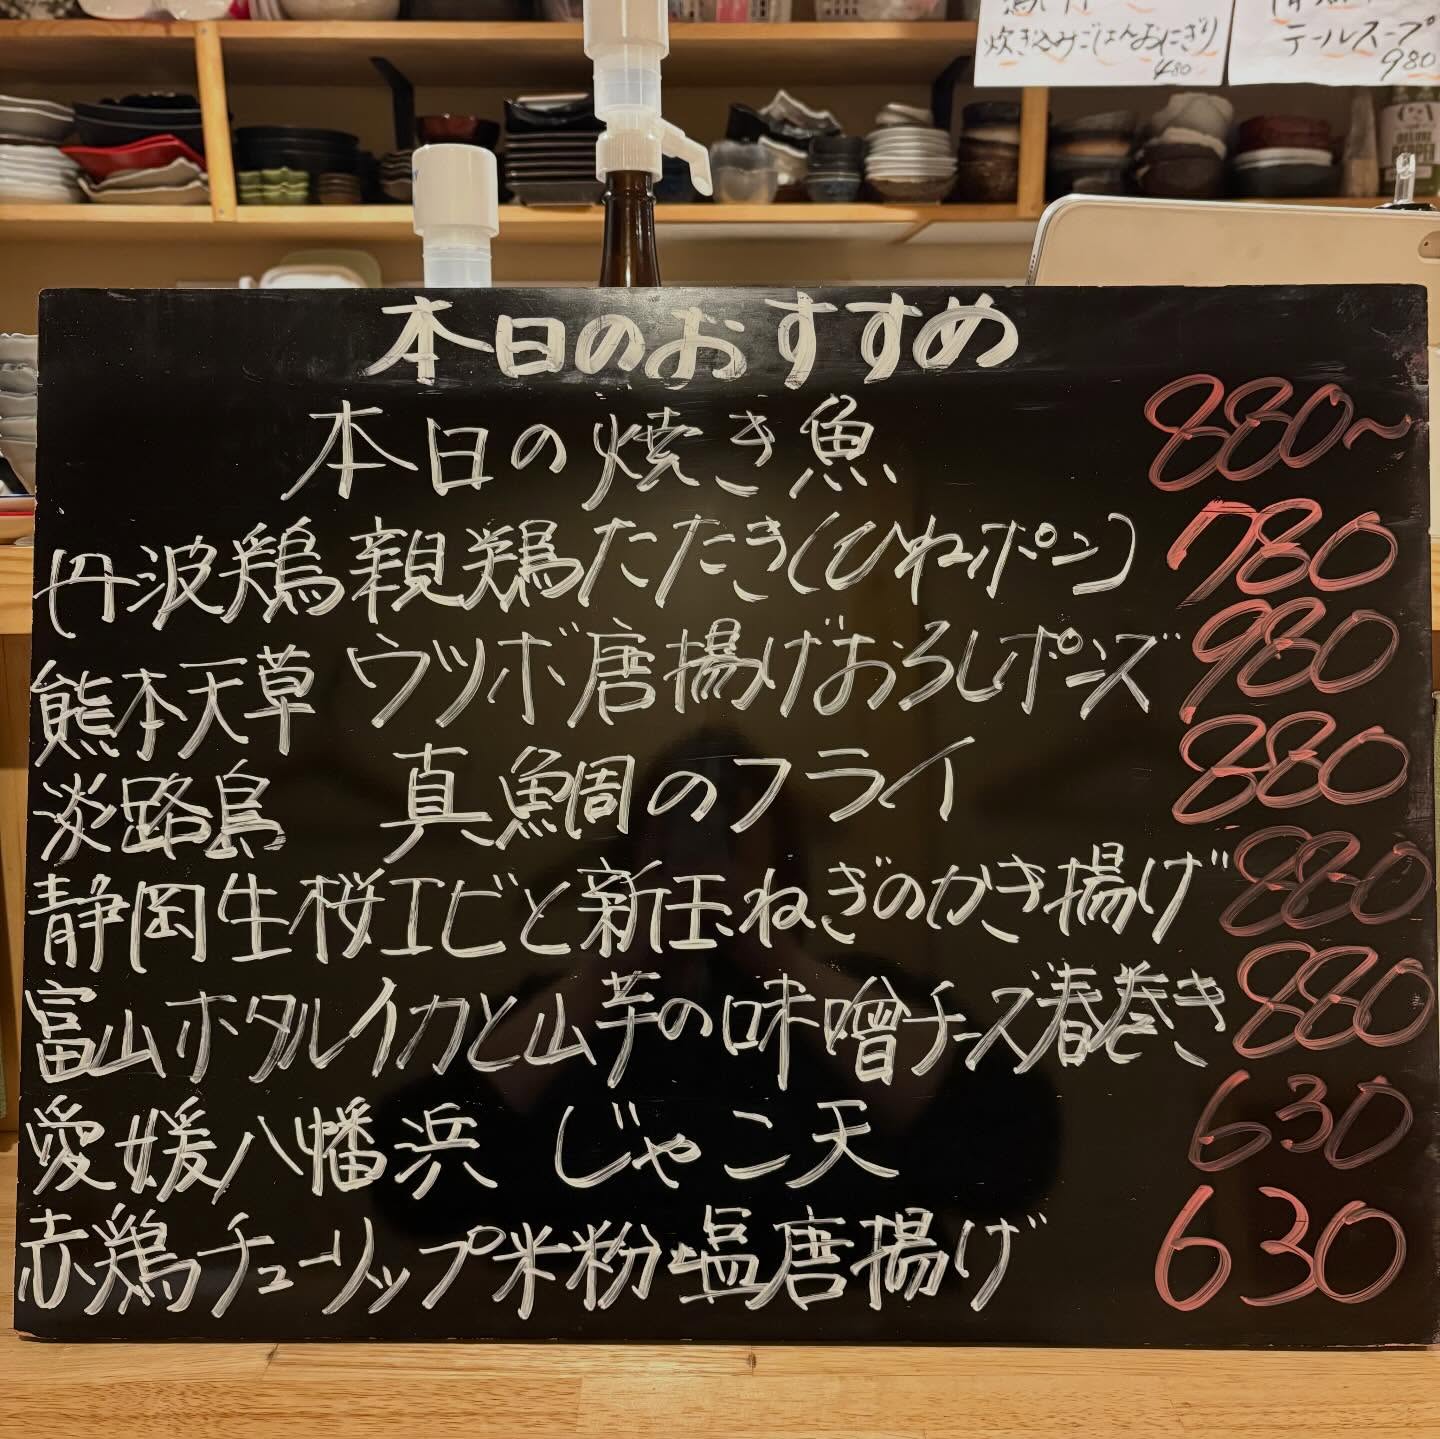 炊き込みごはんおにぎり
480
テールスープ
980
本日のおすすめ
本日の焼き魚 880~
丹波鶏親鶏たたき(ひねポン) 780
熊本天草 ウツボ唐揚げおろしポンズ 980
淡路島 真鯛のフライ 880
静岡生桜エビと新玉ねぎのかき揚げ 880
富山ホタルイカと山芋の味噌チーズ春巻き 880
愛媛八幡浜 じゃこ天 630
赤鶏チューリップ米粉塩唐揚げ 630